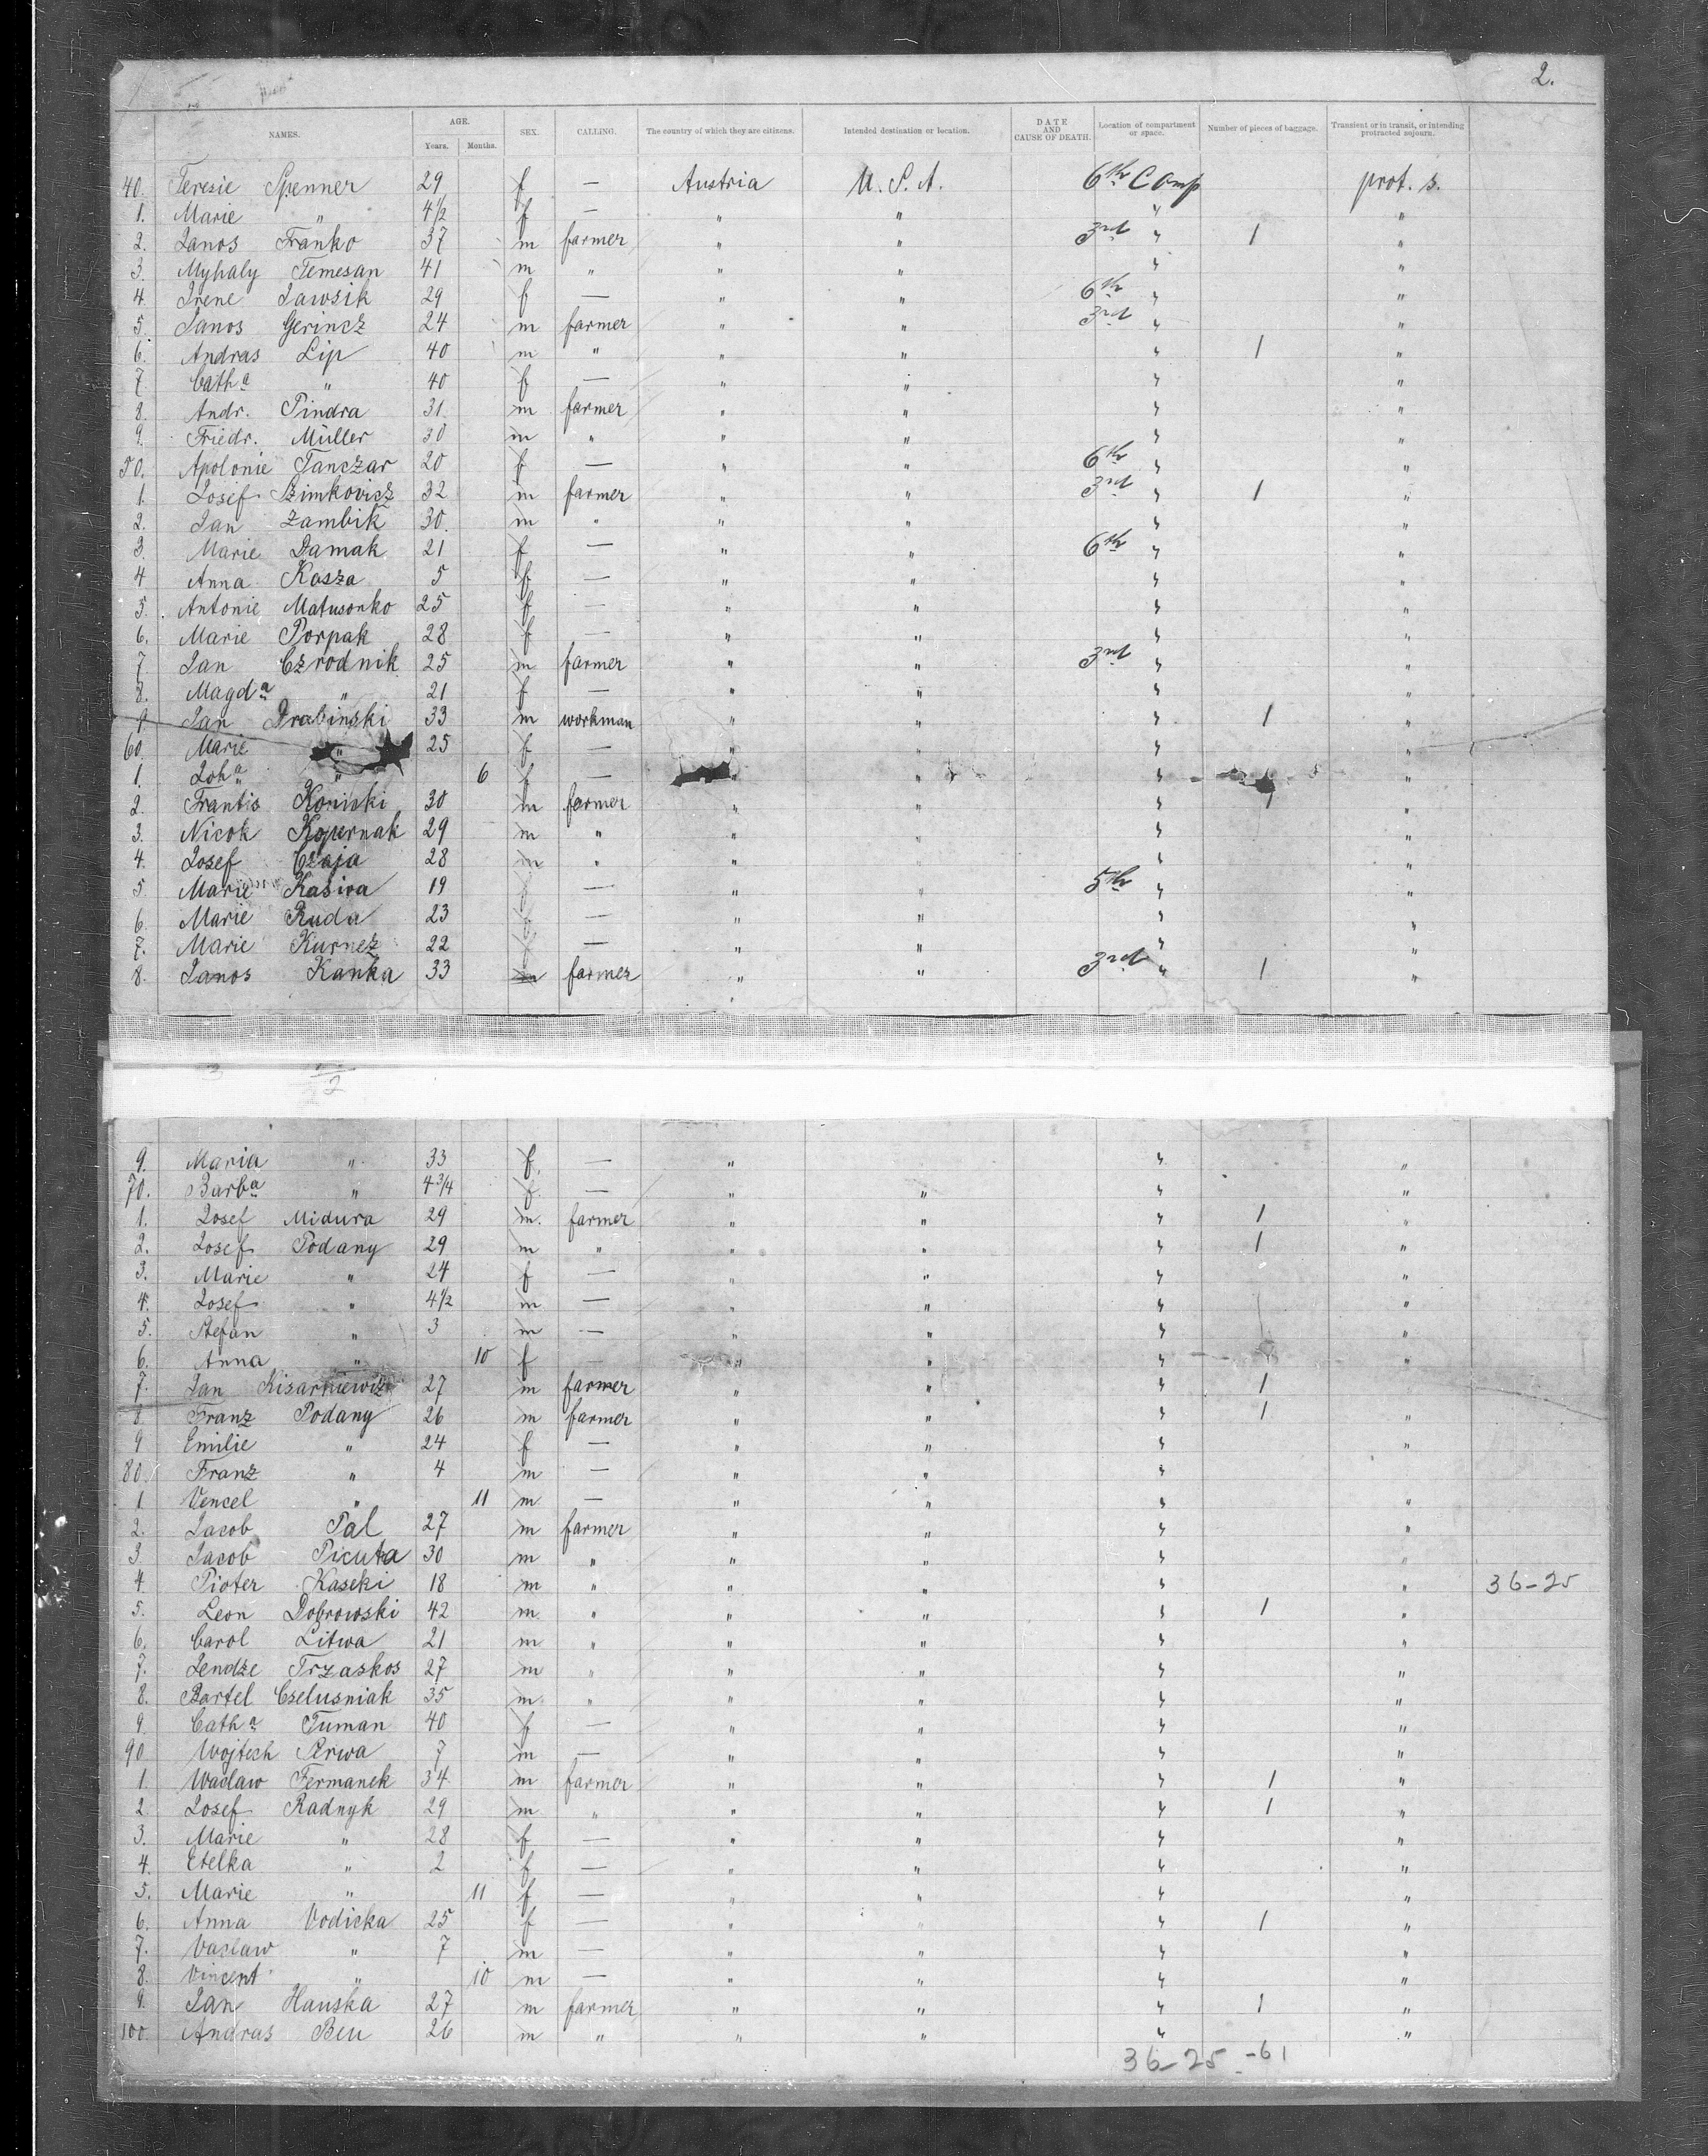 2.
NAMES. AGE. Years. Months. SEX. CALLING. The country of which they are citizens. Intended destination or location. DATE AND CAUSE OF DEATH. Location of compartment or space. Number of pieces of baggage. Transient or in transit, or intending protracted sojourn.
40. Teresie Spenner 29 f — Austria U. S. A. 6th Comp prot. s.
1. Marie " 4½ f — " " " "
2. Janos Franko 37 m farmer " " 3rd " 1 "
3. Myhaly Temesan 41 m " " " " "
4. Irene Jawsik 29 f — " " 6th " "
5. Janos Gerincz 24 m farmer " " 3rd " "
6. Andras Lip 40 m " " " " 1 "
7 Catha " 40 f — " " " "
8. Andr. Pindra 31. m farmer " " " "
9. Friedr. Müller 30 m " " " " "
50. Apolonie Tanczar 20 f — " " 6th " "
1. Josef Szimkovicz 32 m farmer " " 3rd " 1 "
2. Jan Zambik 30. m " " " " "
3. Marie Damak 21 f — " " 6th " "
4 Anna Kasza 5 f — " " " "
5. Antonie Matusonko 25 f — " " " "
6. Marie Porpak 28 f — " " " "
7 Jan Czrodnik 25 m farmer " " 3rd " "
8. Magda " 21 f — " " " "
9. Jan Drabinski 33 m workman " " " 1 "
60. Marie " 25 f — " " " "
1. Joha " 6 f — " " " "
2. Frantis Koniski 30 m farmer " " " 1 "
3. Nicok Kopernak 29 m " " " " "
4. Josef Czaja 28 m " " " " "
5. Marie Kasiva 19 f — " " 5th " "
6. Marie Ruda 23 f — " " " "
7. Marie Kurnez 22 f — " " " "
8. Janos Kanka 33 m farmer " " 3rd " 1 "
3 2
9. Maria " 33 f. — " " "
70. Barba " 4¾ f. — " " " "
1. Josef Midura 29 m. farmer " " " 1 "
2. Josef Podany 29 m " " " " 1 "
3. Marie " 24 f — " " " "
4. Josef " 4½ m — " " " "
5. Stefan " 3 m — " " " "
6. Anna " 10 f — " " " "
7. Jan Kisarniewiz 27 m farmer " " " 1
8. Franz Podany 26 m farmer " " " 1 "
9 Emilie " 24 f — " " " "
80. Franz " 4 m — " " "
1. Vencel " 11 m — " " " "
2. Jacob Pal 27 m farmer " " " "
3. Jacob Picuta 30 m " " " " "
4. Pioter Kaseki 18 m " " " " " 36-25
5. Leon Dobrowski 42 m " " " " 1 "
6. Carol Litwa 21 m " " " " "
7. Jendze Trzaskos 27 m " " " " "
8. Bartel Cselusniak 35 m " " " " "
9. Catha Tuman 40 f — " " " "
90 Wojtech Perwa 7 m — " " " "
1. Waclaw Fermanek 34 m farmer " " " 1 "
2 Josef Radnyk 29 m " " " " 1 "
3. Marie " 28 f — " " " "
4. Etelka " 2 f — " " " "
5. Marie " 11 f — " " " "
6. Anna Vodicka 25 f — " " " 1 "
7. Vaclaw " 7 m — " " " "
8. Vincent " 10 m — " " " "
9. Jan Hauska 27 m farmer " " " 1 "
100. Andras Beu 26 m " " " " "
36-25 -61